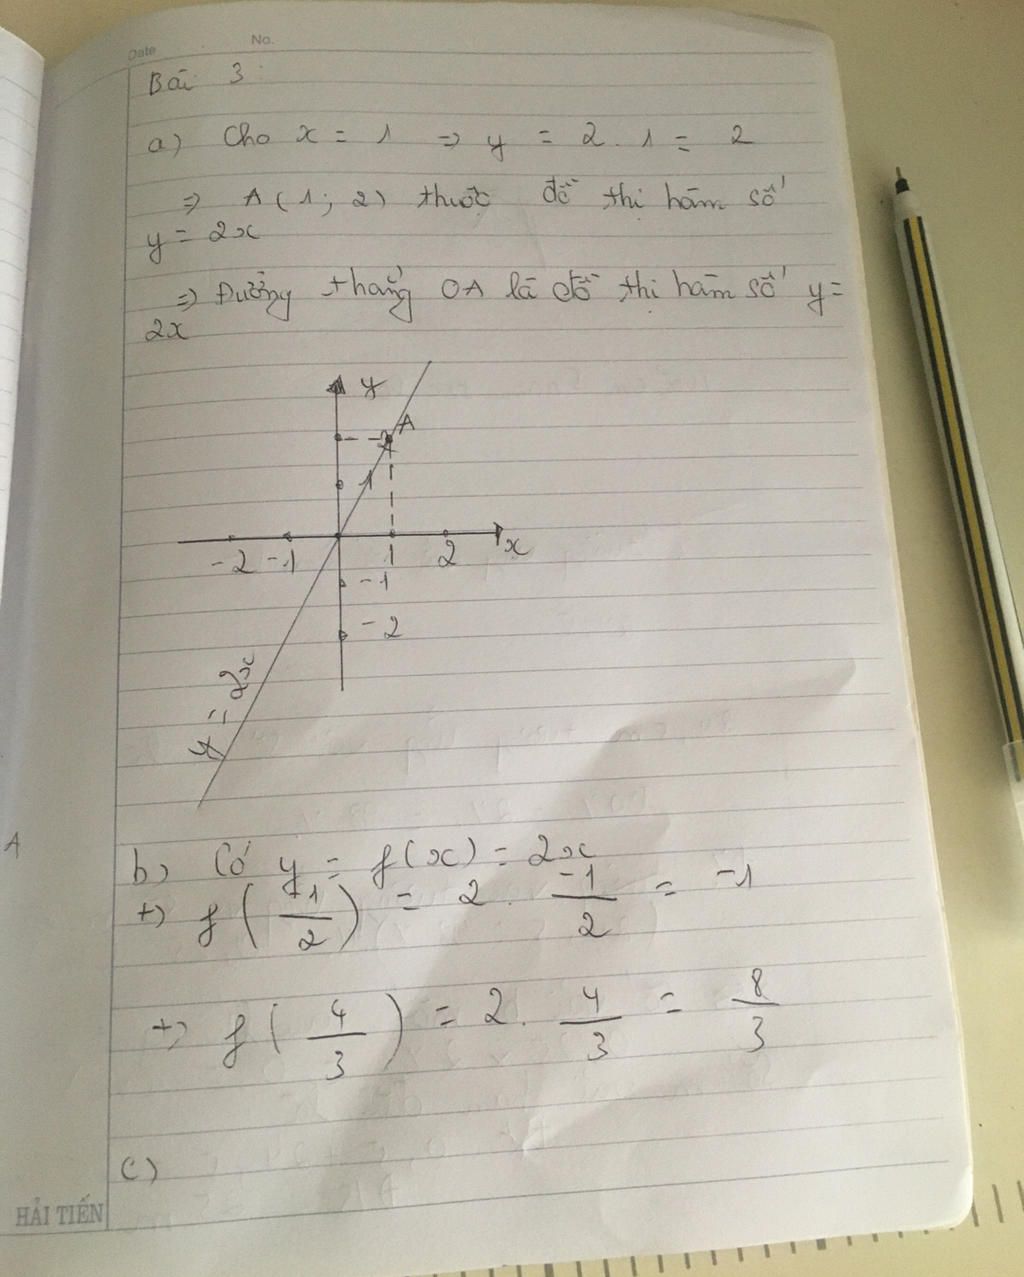 Date No.
Bài 3
a) Cho x = 1 => y = 2 . 1 = 2
=> A ( 1 ; 2 ) thuộc đồ thị hàm số
y = 2x
=> Đường thẳng OA là đồ thị hàm số y =
2x
y
A
2
1
-2 -1 1 2 x
-1
-2
y = 2x
b) Có y = f(x) = 2x
+) f(-1/2) = 2 . -1/2 = -1
+) f(4/3) = 2 . 4/3 = 8/3
c)
HẢI TIẾN
A